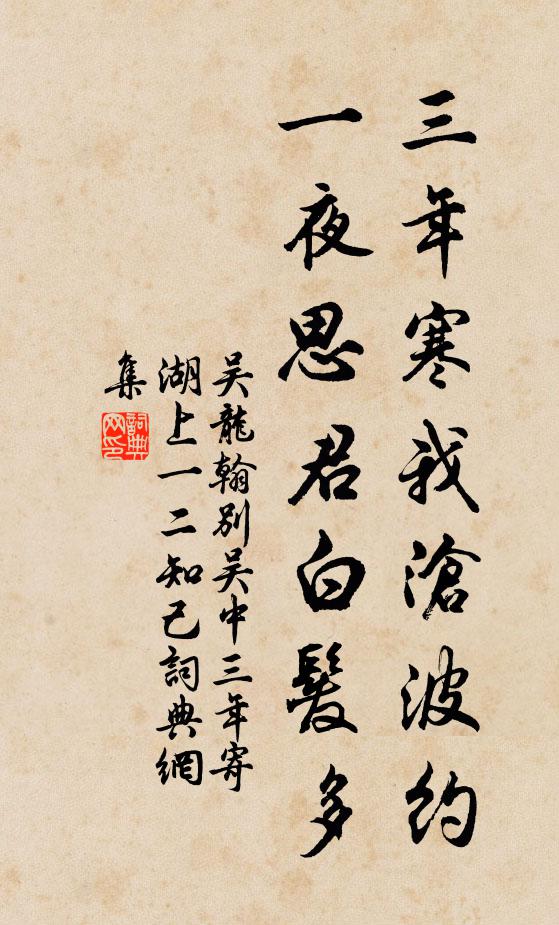 三年寒我滄波約
一夜思君白髮多
吳龍翰別吳中三年寄
湖上一二知己詞典網
集
詞典
网印